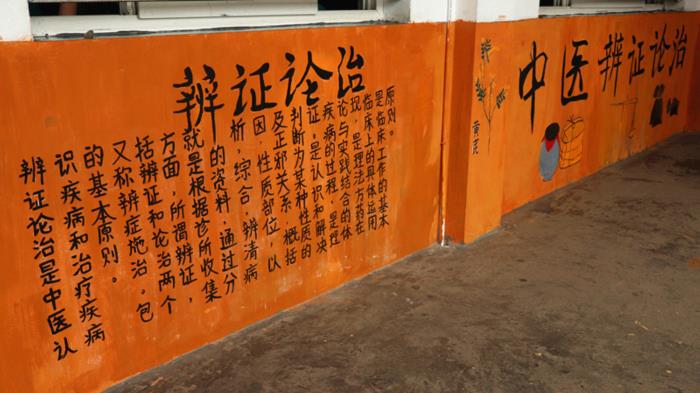 辨证论治
辨证论治是中医认
识疾病和治疗疾病
的基本原则。
又称辨症施治。包
括辨证和论治两个
方面，所谓辨证，
就是根据诊所收集
的资料，通过分
析，综合，辨清病
因，性质部位，以
及正邪关系，概括
判断为某种性质的
证，是认识和解决
疾病的过程，是理
论与实践结合的体
现，是理法方药在
临床上的具体运用
是临床工作的基本
原则。
黄芪
中医辨证论治